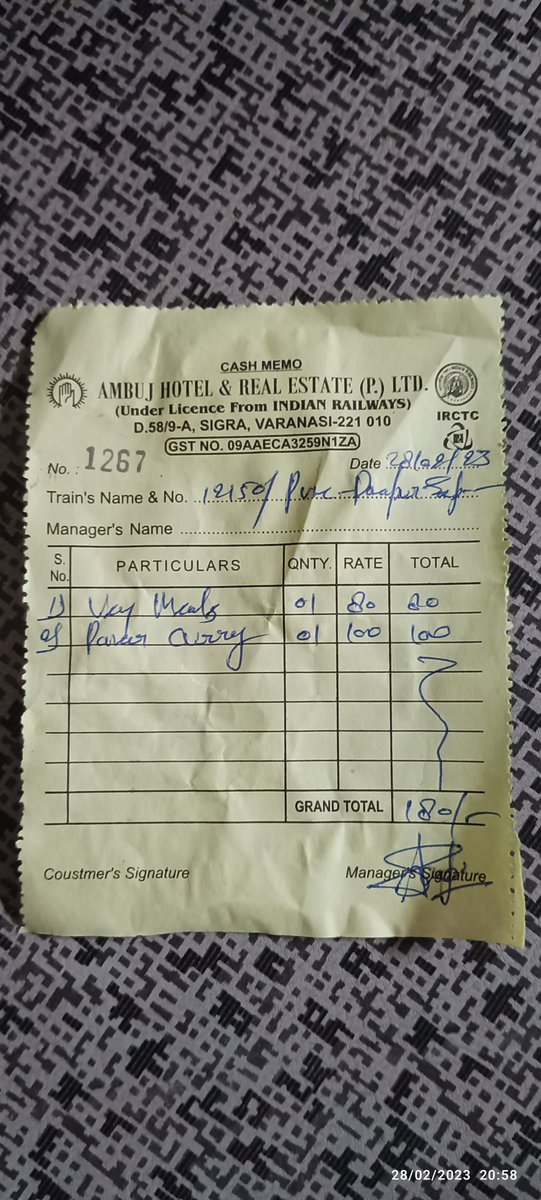 CASH MEMO
AMBUJ HOTEL & REAL ESTATE (P.) LTD.
(Under Licence From INDIAN RAILWAYS)
D.58/9-A, SIGRA, VARANASI-221 010
IRCTC
GST NO. 09AAECA3259N1ZA
No. : 1267 Date 28/02/23
Train's Name & No. 12150/ Pune-Danapur
Manager's Name
S. No. PARTICULARS QNTY. RATE TOTAL
1) Veg Meals 01 80 80
2) Paneer Curry 01 100 100
GRAND TOTAL 180/-
Coustmer's Signature Manager's Signature
28/02/2023 20:58